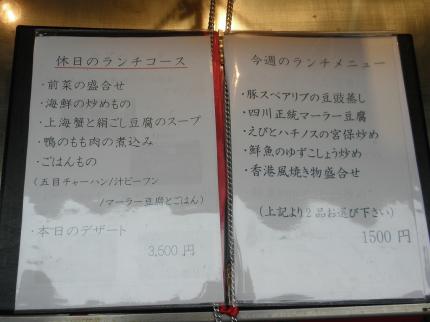 休日のランチコース
・前菜の盛合せ
・海鮮の炒めもの
・上海蟹と絹ごし豆腐のスープ
・鴨のもも肉の煮込み
・ごはんもの
(五目チャーハン/汁ビーフン
/マーラー豆腐とごはん)
・本日のデザート
3,500 円
今週のランチメニュー
・豚スペアリブの豆豉蒸し
・四川正統マーラー豆腐
・えびとハチノスの宮保炒め
・鮮魚のゆずこしょう炒め
・香港風焼き物盛合せ
(上記より2品お選び下さい)
1500 円